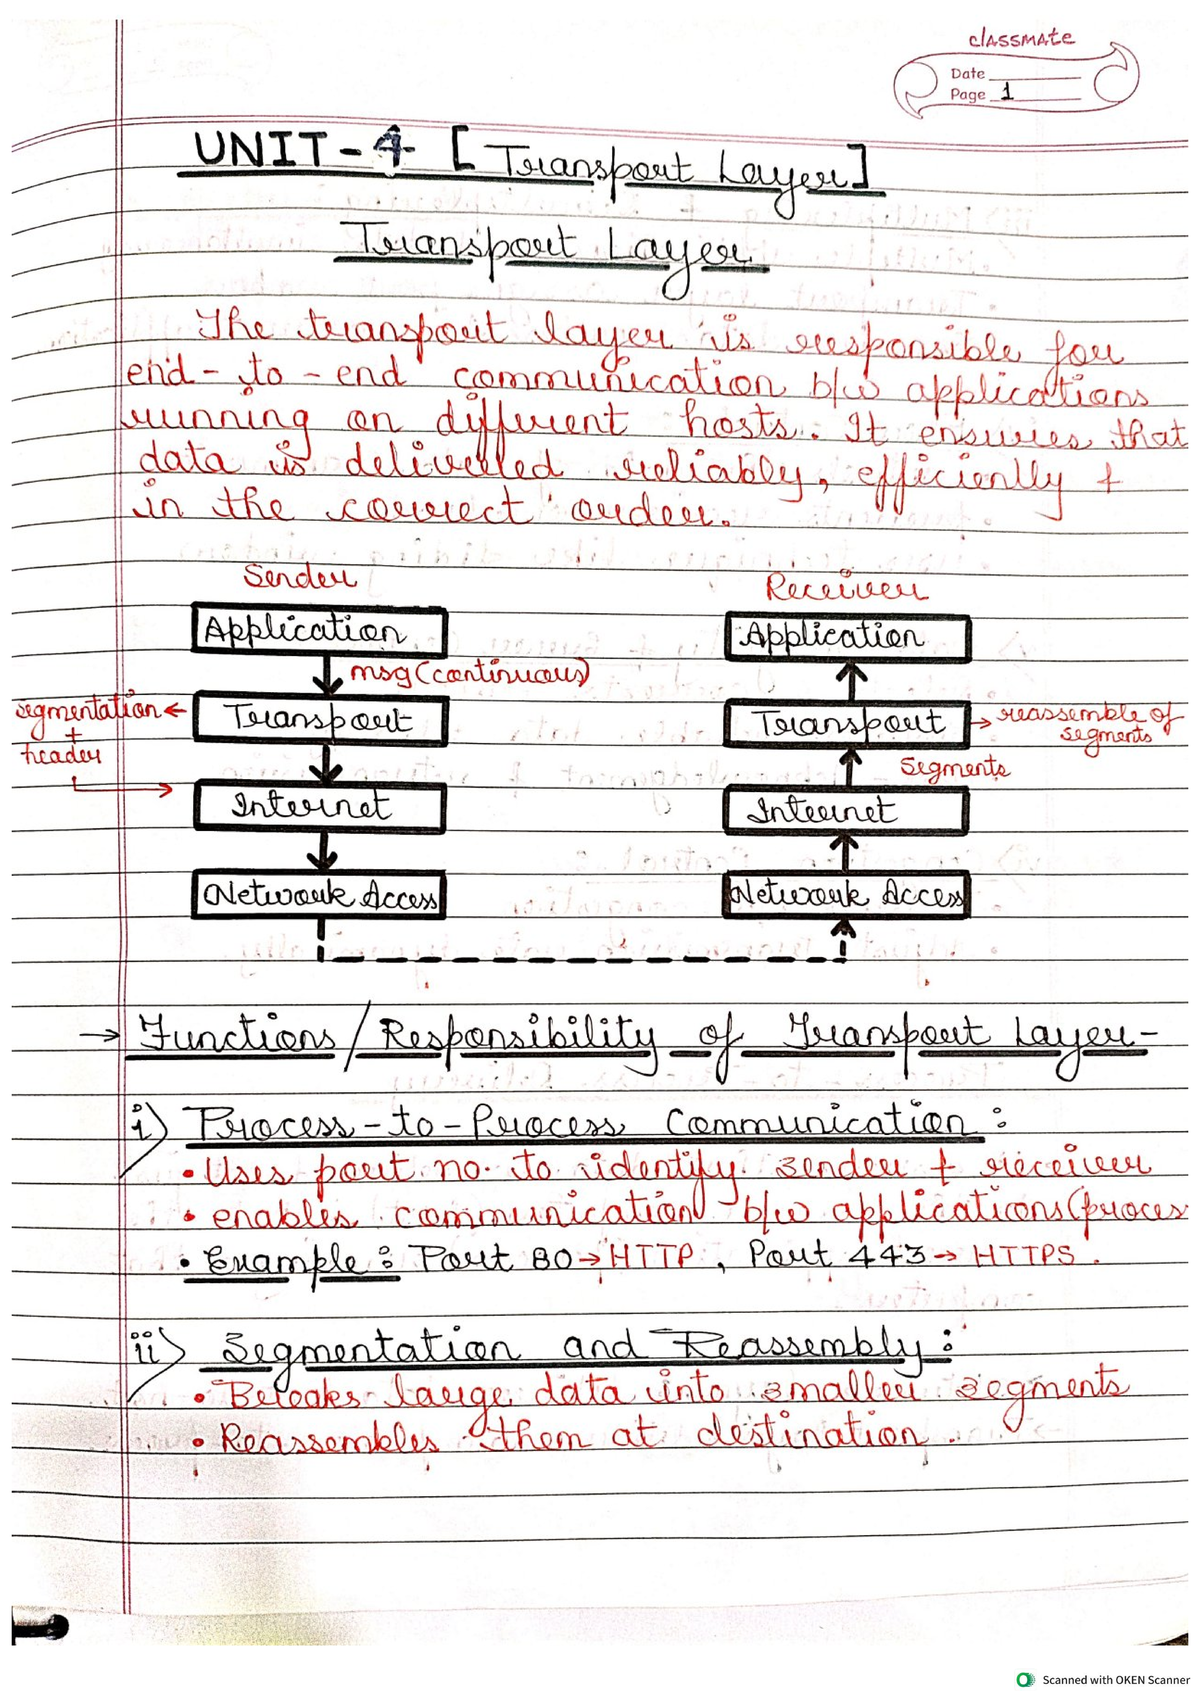 classmate
Date
Page 1
UNIT-4 [Transport Layer]
Transport Layer
The transport layer is responsible for
end-to-end communication b/w applications
running on different hosts. It ensures that
data is delivered reliably, efficiently +
in the correct order.
Sender
Receiver
Application
Application
msg (continuous)
segmentation
+
header
Transport
Transport
reassemble of
segments
Segments
Internet
Internet
Network Access
Network Access
→ Functions/Responsibility of Transport Layer-
i) Process-to-Process Communication:
• Uses port no. to identify sender + receiver
• enables communication b/w applications(proces
• Example: Port 80→HTTP, Port 443→HTTPS.
ii) Segmentation and Reassembly:
• Breaks large data into smaller segments
• Reassembles them at destination.
Scanned with OKEN Scanner